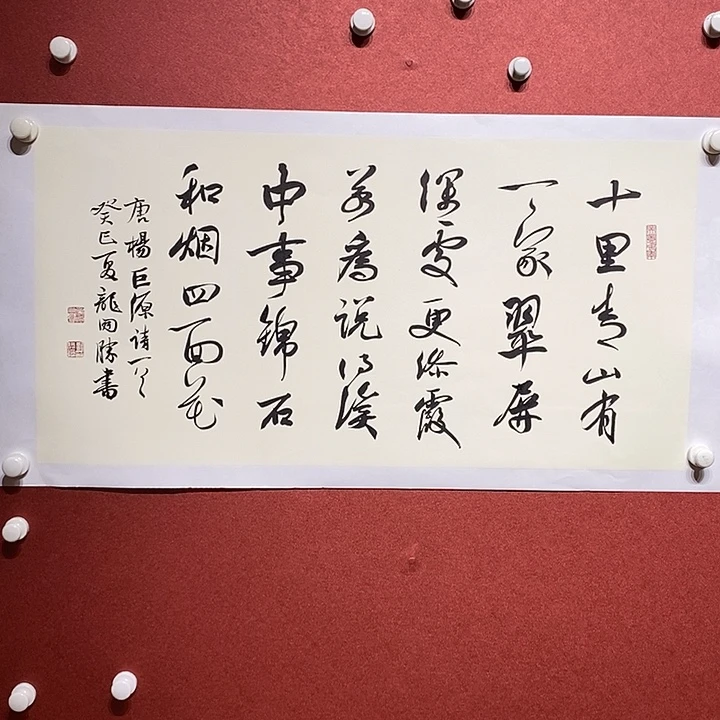 十里青山有
一家翠屏
深處更添霞
若為説得溪
中事錦石
和烟四面花
唐楊巨源詩一首
癸巳夏龍勝書